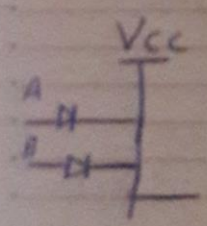 Vcc
A
B